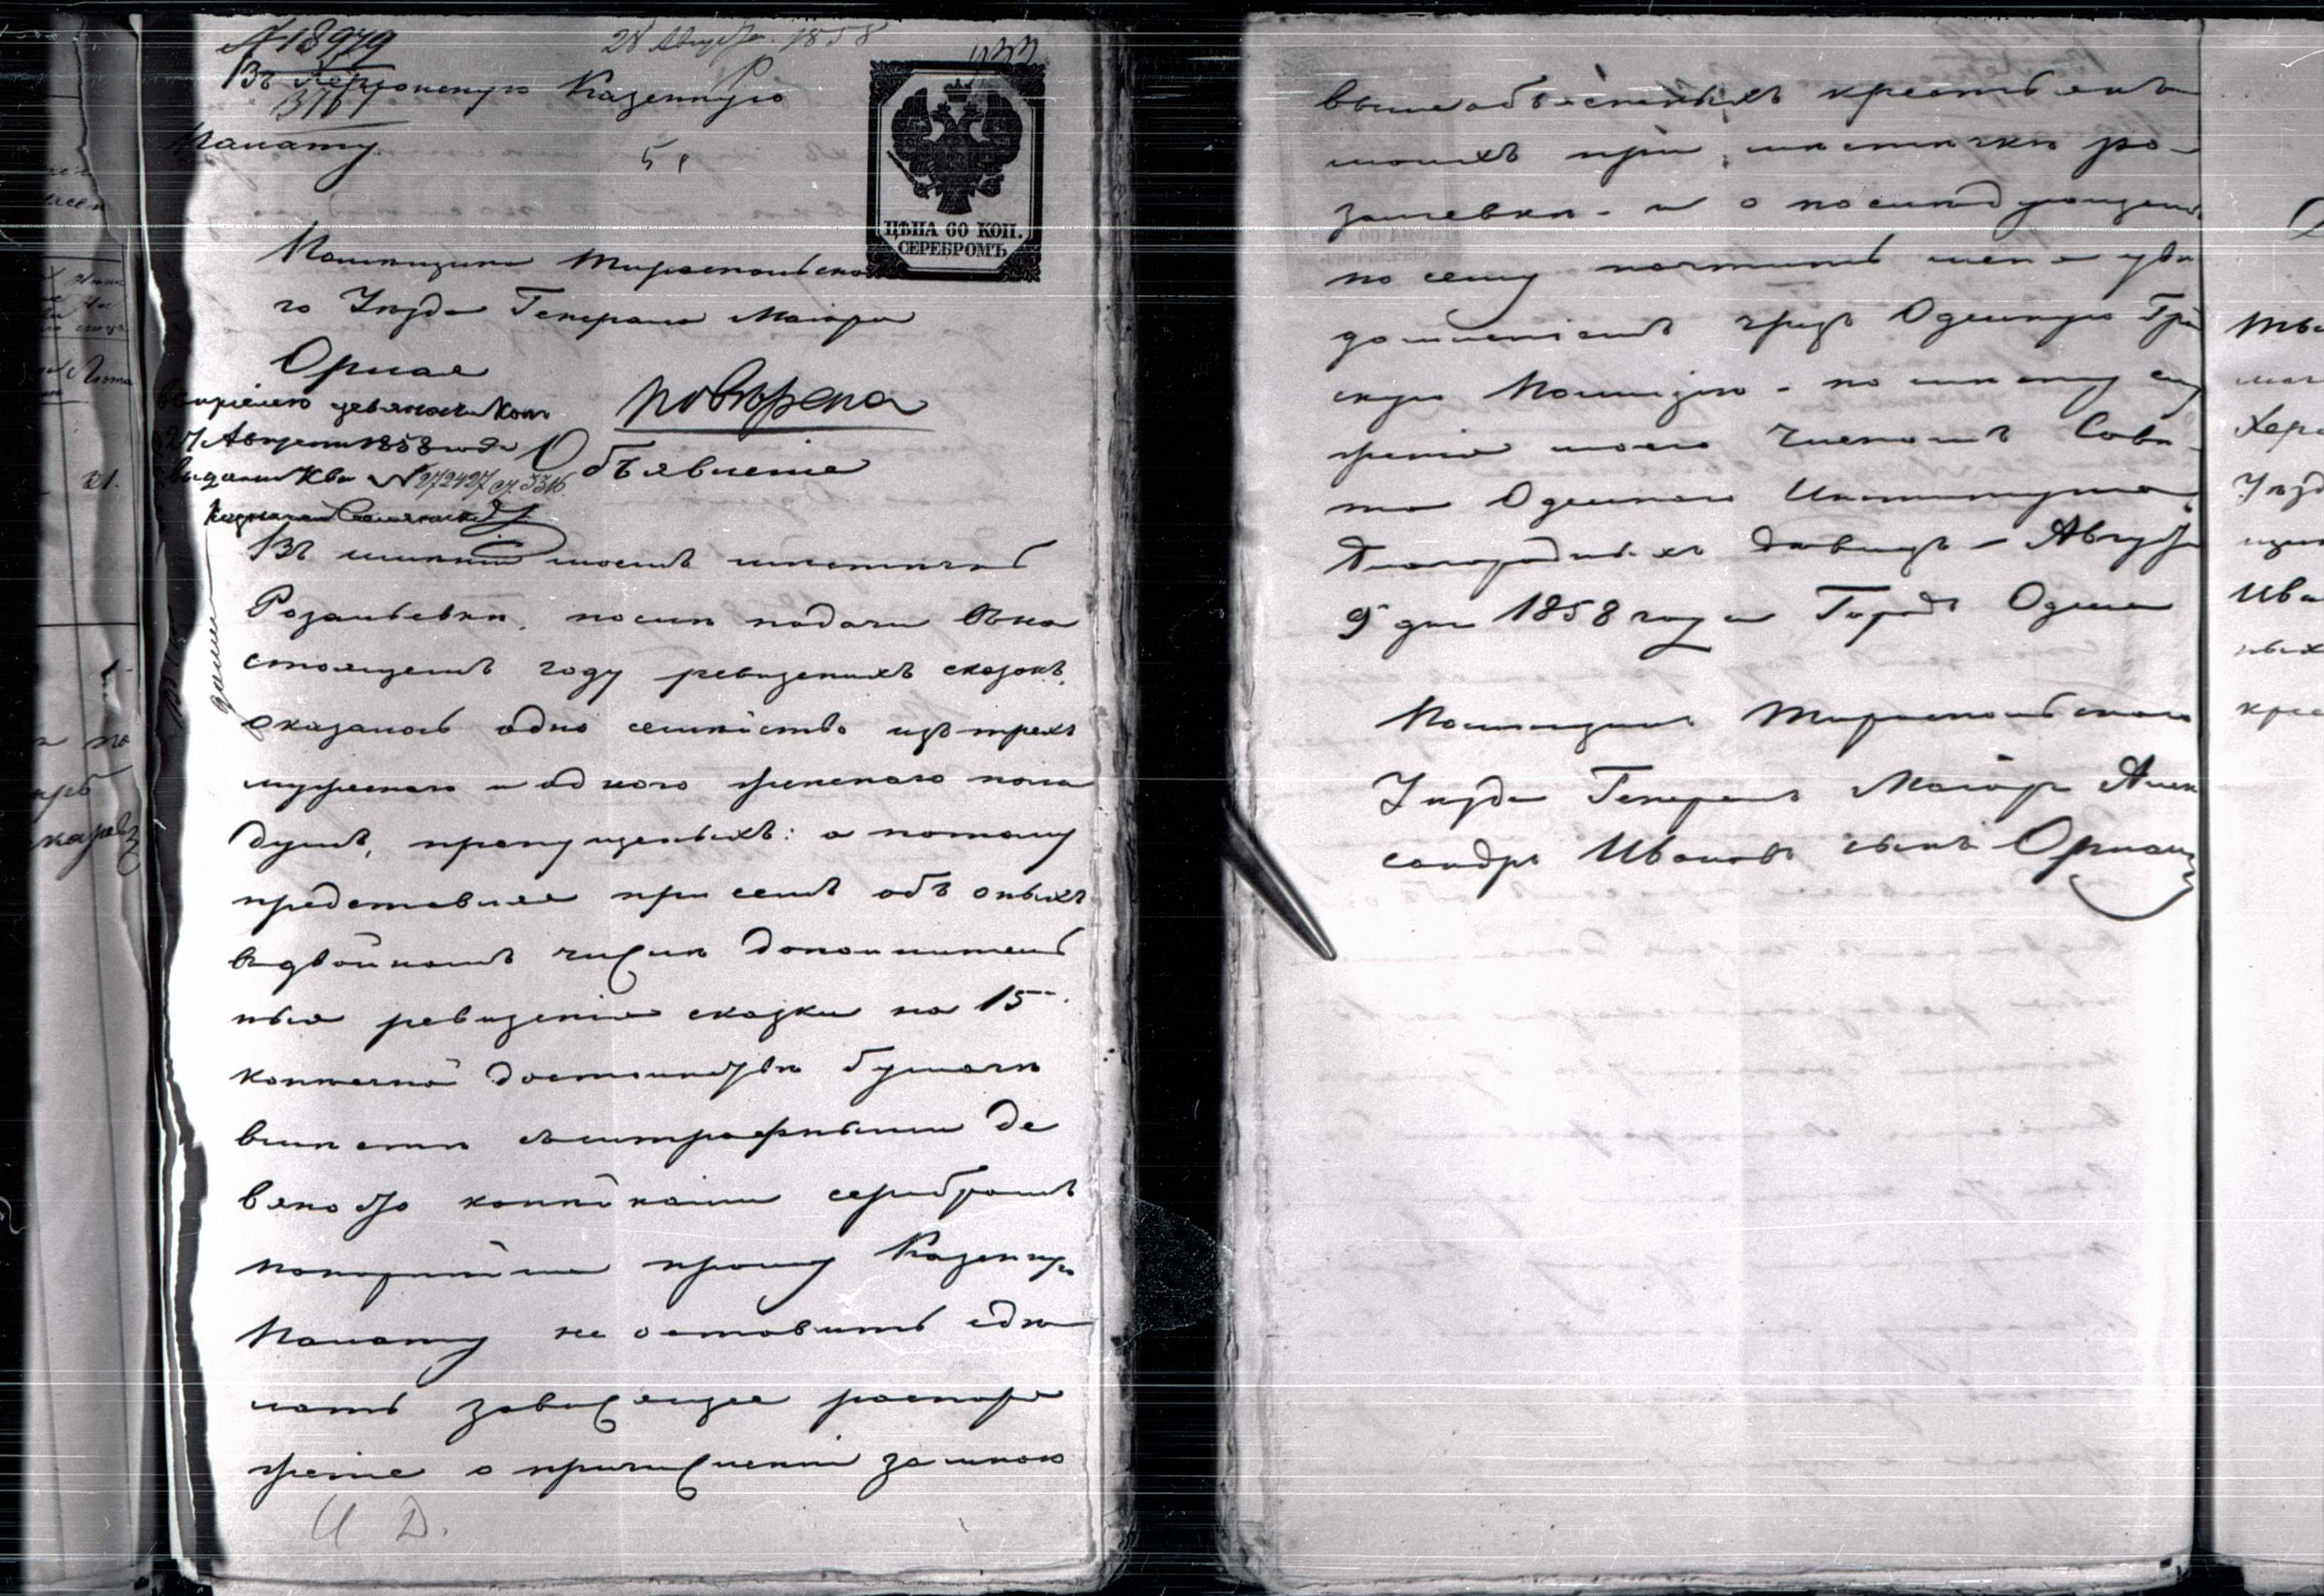 № 18979
28 Августа 1858
Въ Херсонскую Казенную
Палату
5
ЦѢНА 60 КОП.
СЕРЕБРОМЪ
Помѣщика Тираспольска
го Уѣзда Генерала Маіора
Орлая
повѣрена
27 Августа 1858 года
Объявленіе
выдана Кви № 272427 ст. 3316
Въ имѣніи моемъ мѣстечкѣ
Розаліевки, послѣ подачи въ на
стоящемъ году ревизскихъ сказокъ,
оказалось одно семейство изъ трехъ
мужескаго и одного женскаго пола
душъ, пропущенныхъ: а потому
представляя при семъ объ оныхъ
въ двойномъ числѣ дополнитель
ныя ревизскія сказки на 15
копѣечной достоинства бумаги
вмѣстѣ съ штрафными де
вяносто копѣйками серебромъ
покорнѣйше прошу Казенную
Палату не оставить сдѣ
лать зависящее распоря
женіе о причисленіи за мною
И Д.
вышеобъясненныхъ крестьянъ
моихъ при мѣстечкѣ Ро
заліевки - и о послѣдующемъ
по сему почтить меня увѣ
домленіемъ чрезъ Одескую Град
скую Полицію - по мѣсту слу
женія моего Членомъ Совѣ
та Одескаго Института
Благородныхъ дѣвицъ - Августа
9 дня 1858 года Городъ Одесса
Помѣщикъ Тираспольскаго
Уѣзда Генералъ Маіоръ Алек
сандръ Ивановъ сынъ Орлай